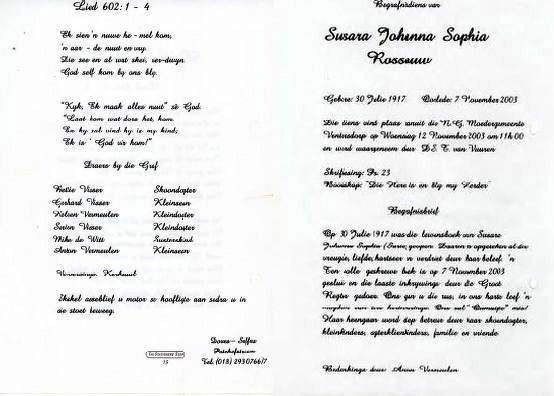 Lied 602:1 - 4
Ek sien 'n nuwe he - mel kom,
'n aar - de nuut en vry.
Die see en al wat skei, ver-dwyn.
God self kom by ons bly.
"Kyk, Ek maak alles nuut" sê God.
"Laat kom wat dors het, kom.
En hy sal vind hy is my kind;
Ek is God vir hom!"
Draers by die Graf
Bettie Visser Skoondogter
Gerhard Visser Kleinseun
Vermeulen Kleindogter
Visser Kleindogter
Mike de Witt
Anton Vermeulen Kleinseun
Verversings: Kerksaal
Skakel asseblief u motor se hoofligte aan sodra u in
die stoet beweeg.
Doves - Selfas
Potchefstroom
Tel. (018) 2930766/7
15
Begrafnisdiens van
Susara Johanna Sophia
Rossouw
Gebore: 30 Julie 1917 Oorlede: 7 November 2003
Die diens vind plaas vanuit die N.G. Moedergemeente
Ventersdorp op Woensdag 12 November 2003 om 11h00
en word waargeneem deur DS. T. van Vuuren
Skriflesing: Ps. 23
Boodskap: "Die Here is en bly my Herder"
Begrafnisbrief
Op 30 Julie 1917 was die lewensboek van Susara
Johanna Sophia gopen. Daarin is opgeteken al die
vreugde, liefde, hartseer en verdriet deur haar beleef. 'n
Ten volle geskrewe boek is op 7 November 2003
gesluit en die laaste inskrywings deur die Groot
Regter gedoen. Ons gun u die rus, in ons harte leef 'n
Haar heengaan word diep betreur deur haar skoondogter,
kleinkinders, agterkleinkinders, familie en vriende.
Bedankings deur: Anton Vermeulen